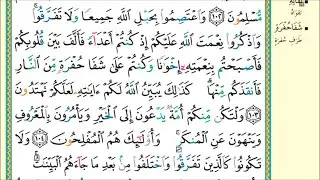 تِلَاوَة
شَفَا حُفْرَةٍ
طَرَفِ حُفْرَةٍ
مُّسْلِمُونَ ١٠٢ وَاعْتَصِمُوا بِحَبْلِ اللَّهِ جَمِيعًا وَلَا تَفَرَّقُوا
وَاذْكُرُوا نِعْمَتَ اللَّهِ عَلَيْكُمْ إِذْ كُنتُمْ أَعْدَاءً فَأَلَّفَ بَيْنَ قُلُوبِكُمْ
فَأَصْبَحْتُم بِنِعْمَتِهِ إِخْوَانًا وَكُنتُمْ عَلَىٰ شَفَا حُفْرَةٍ مِّنَ النَّارِ
فَأَنقَذَكُم مِّنْهَا كَذَٰلِكَ يُبَيِّنُ اللَّهُ لَكُمْ آيَاتِهِ لَعَلَّكُمْ تَهْتَدُونَ
١٠٣ وَلْتَكُن مِّنكُمْ أُمَّةٌ يَدْعُونَ إِلَى الْخَيْرِ وَيَأْمُرُونَ بِالْمَعْرُوفِ
وَيَنْهَوْنَ عَنِ الْمُنكَرِ وَأُولَٰئِكَ هُمُ الْمُفْلِحُونَ ١٠٤ وَلَا
تَكُونُوا كَالَّذِينَ تَفَرَّقُوا وَاخْتَلَفُوا مِن بَعْدِ مَا جَاءَهُمُ الْبَيِّنَاتُ